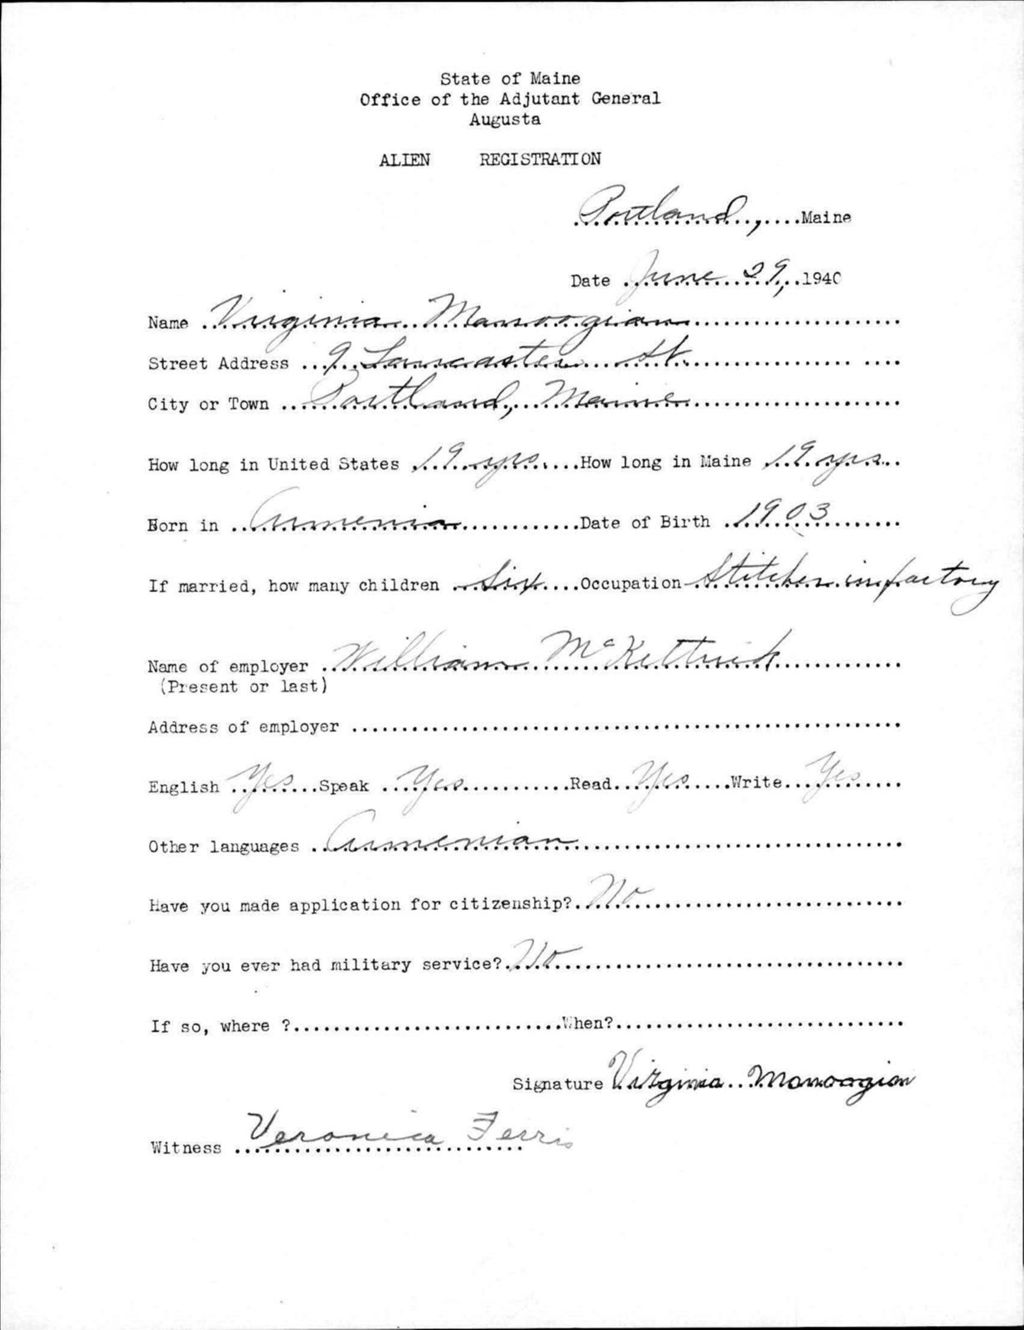 State of Maine
Office of the Adjutant General
Augusta
ALIEN REGISTRATION
Portland, Maine
Date June 29, 1940
Name Virginia Manoogian
Street Address 9 Lancaster St.
City or Town Portland, Maine
How long in United States 19 yrs. How long in Maine 19 yrs.
Born in Armenia Date of Birth 1903
If married, how many children Six Occupation Stitcher in factory
Name of employer William McKettrick
(Present or last)
Address of employer
English Yes Speak Yes Read Yes Write Yes
Other languages Armenian
Have you made application for citizenship? No
Have you ever had military service? No
If so, where ? When?
Signature Virginia Manoogian
Witness Veronica Ferris